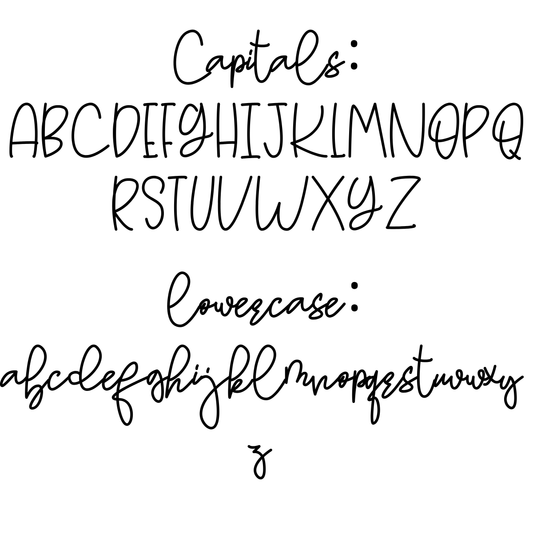 Capitals:
ABCDEFGHIJKLMNOPQ
RSTUVWXYZ
lowercase:
abcdefghijklmnopqrstuvwxy
z